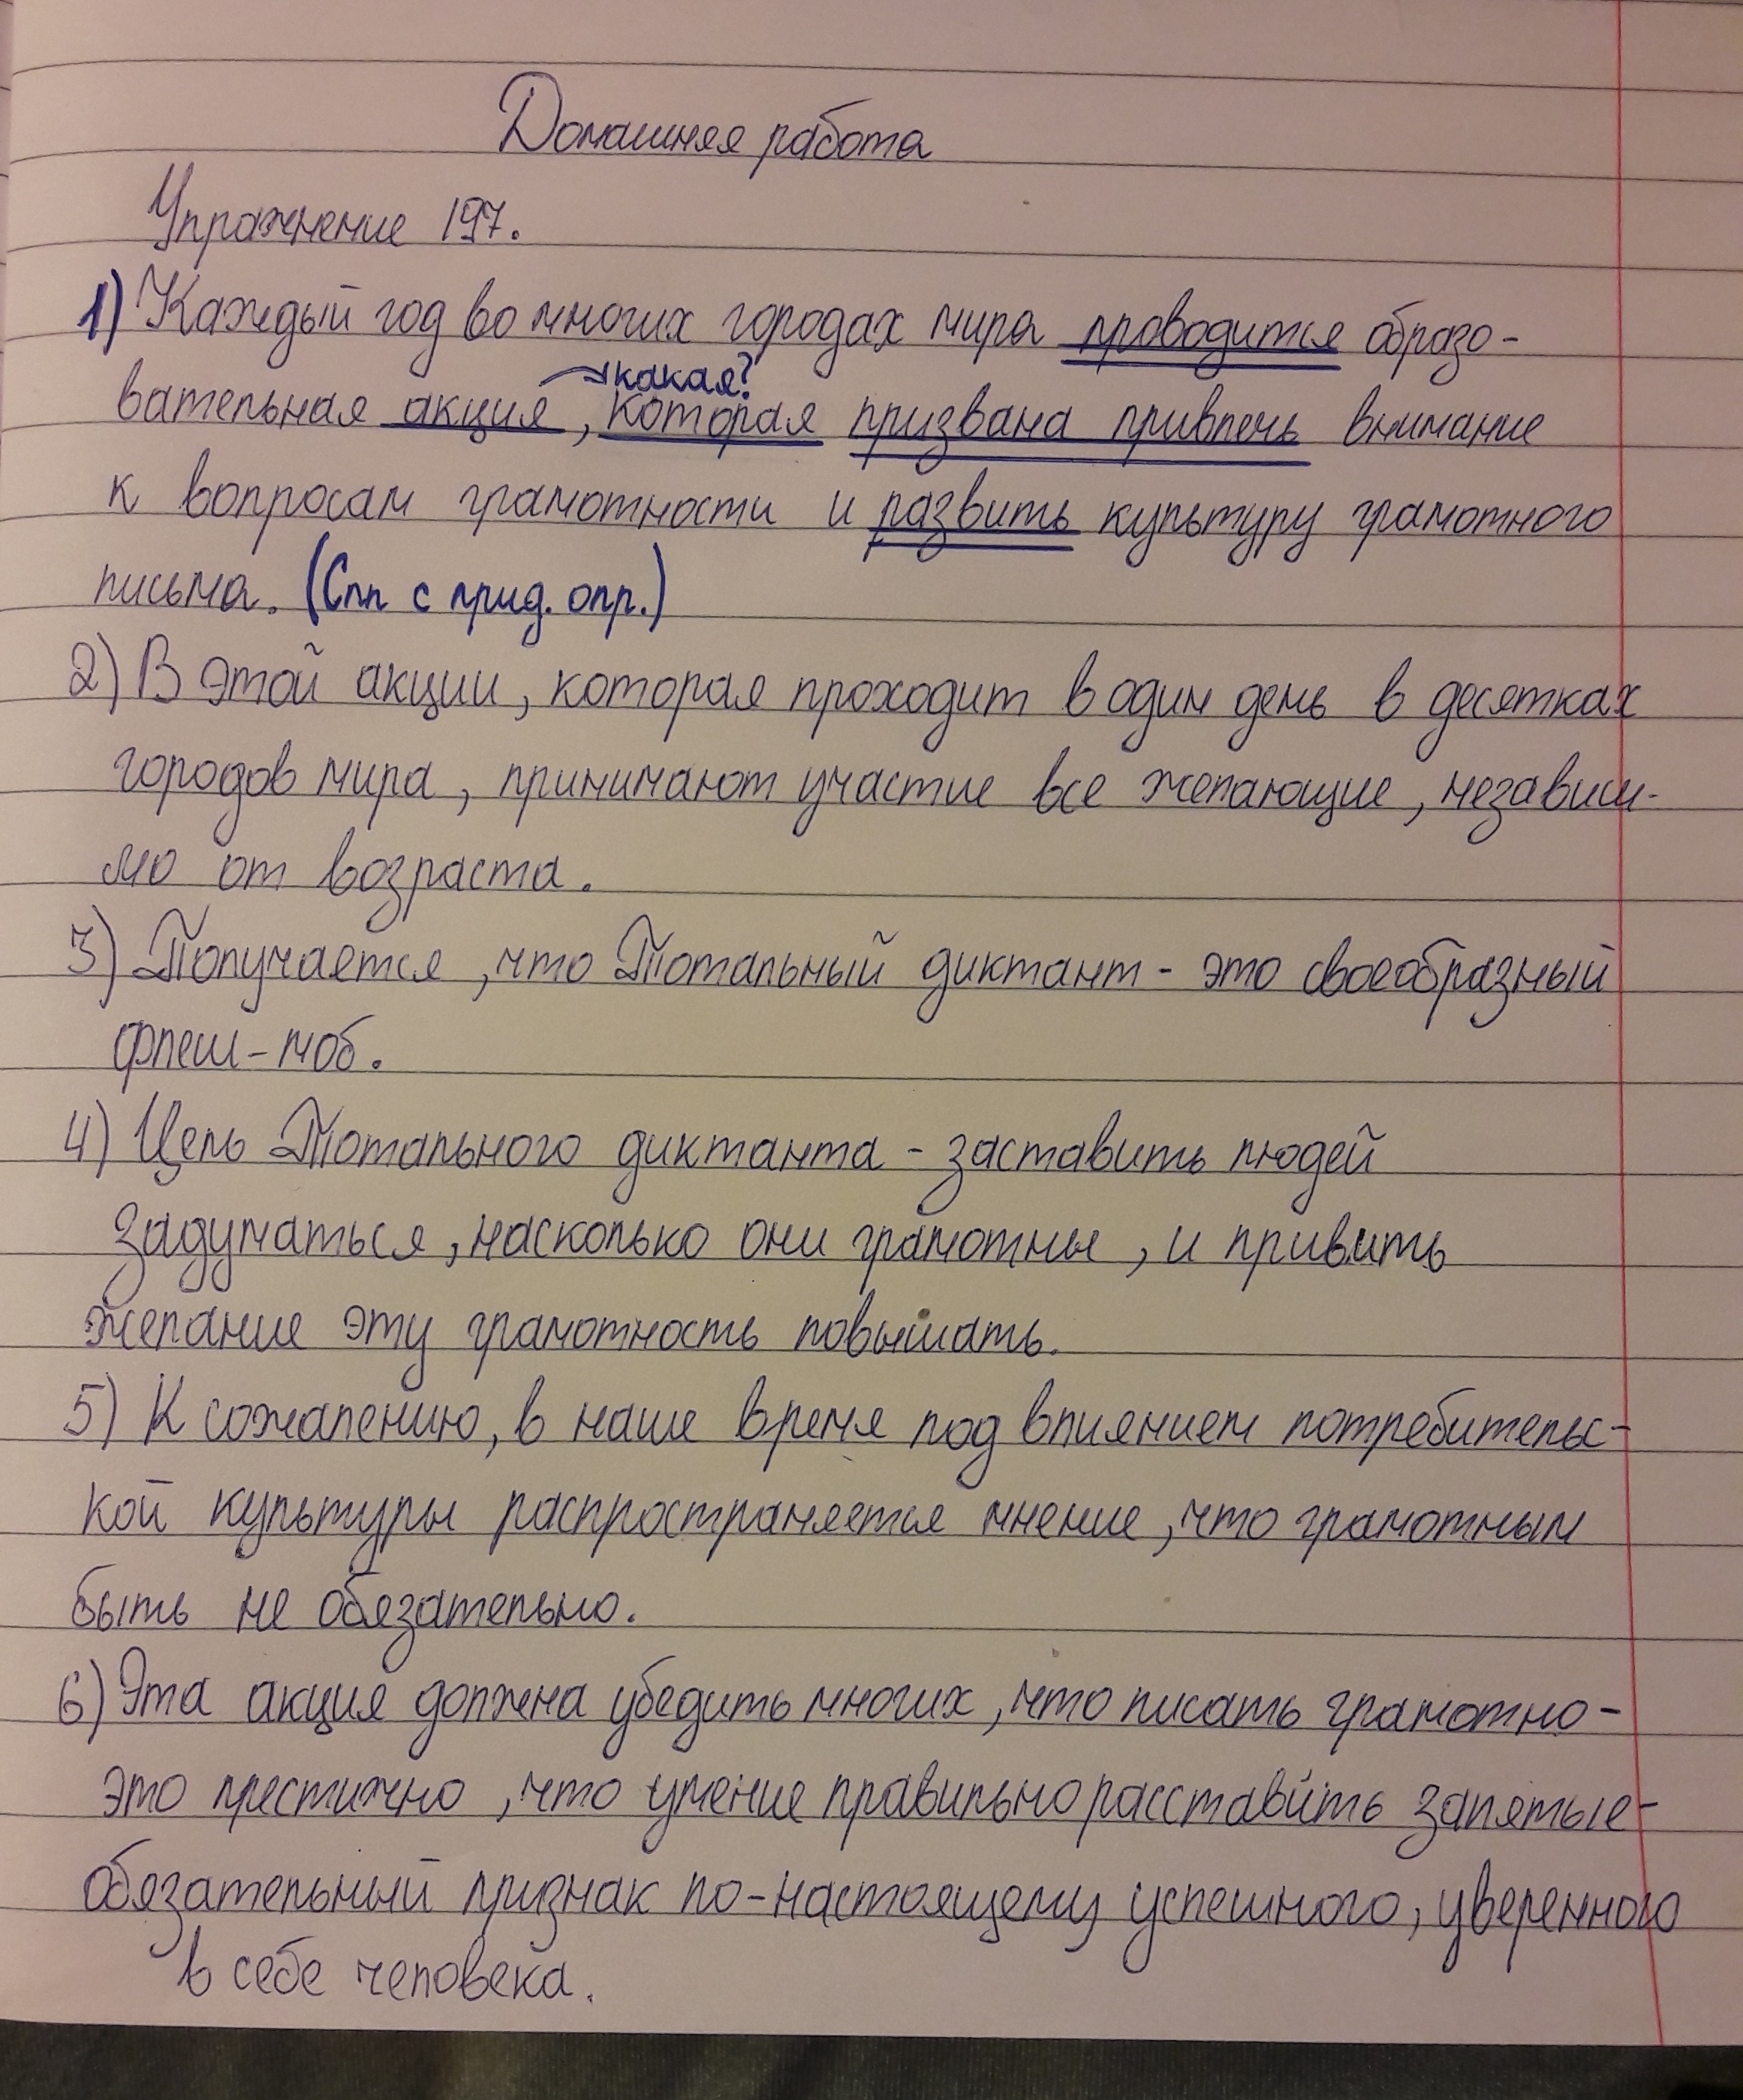 Домашняя работа
Упражнение 197.
1) Каждый год во многих городах мира проводится образо-
какая?
вательная акция, которая призвана привлечь внимание
к вопросам грамотности и развить культуру грамотного
письма. (Спп с прид. опр.)
2) В этой акции, которая проходит в один день в десятках
городов мира, принимают участие все желающие, независи-
мо от возраста.
3) Получается, что Тотальный диктант - это своеобразный
флеш-моб.
4) Цель Тотального диктанта - заставить людей
задуматься, насколько они грамотны, и привить
желание эту грамотность повышать.
5) К сожалению, в наше время под влиянием потребительс-
кой культуры распространяется мнение, что грамотным
быть не обязательно.
6) Эта акция должна убедить многих, что писать грамотно -
это престижно, что умение правильно расставить запятые -
обязательный признак по-настоящему успешного, уверенного
в себе человека.